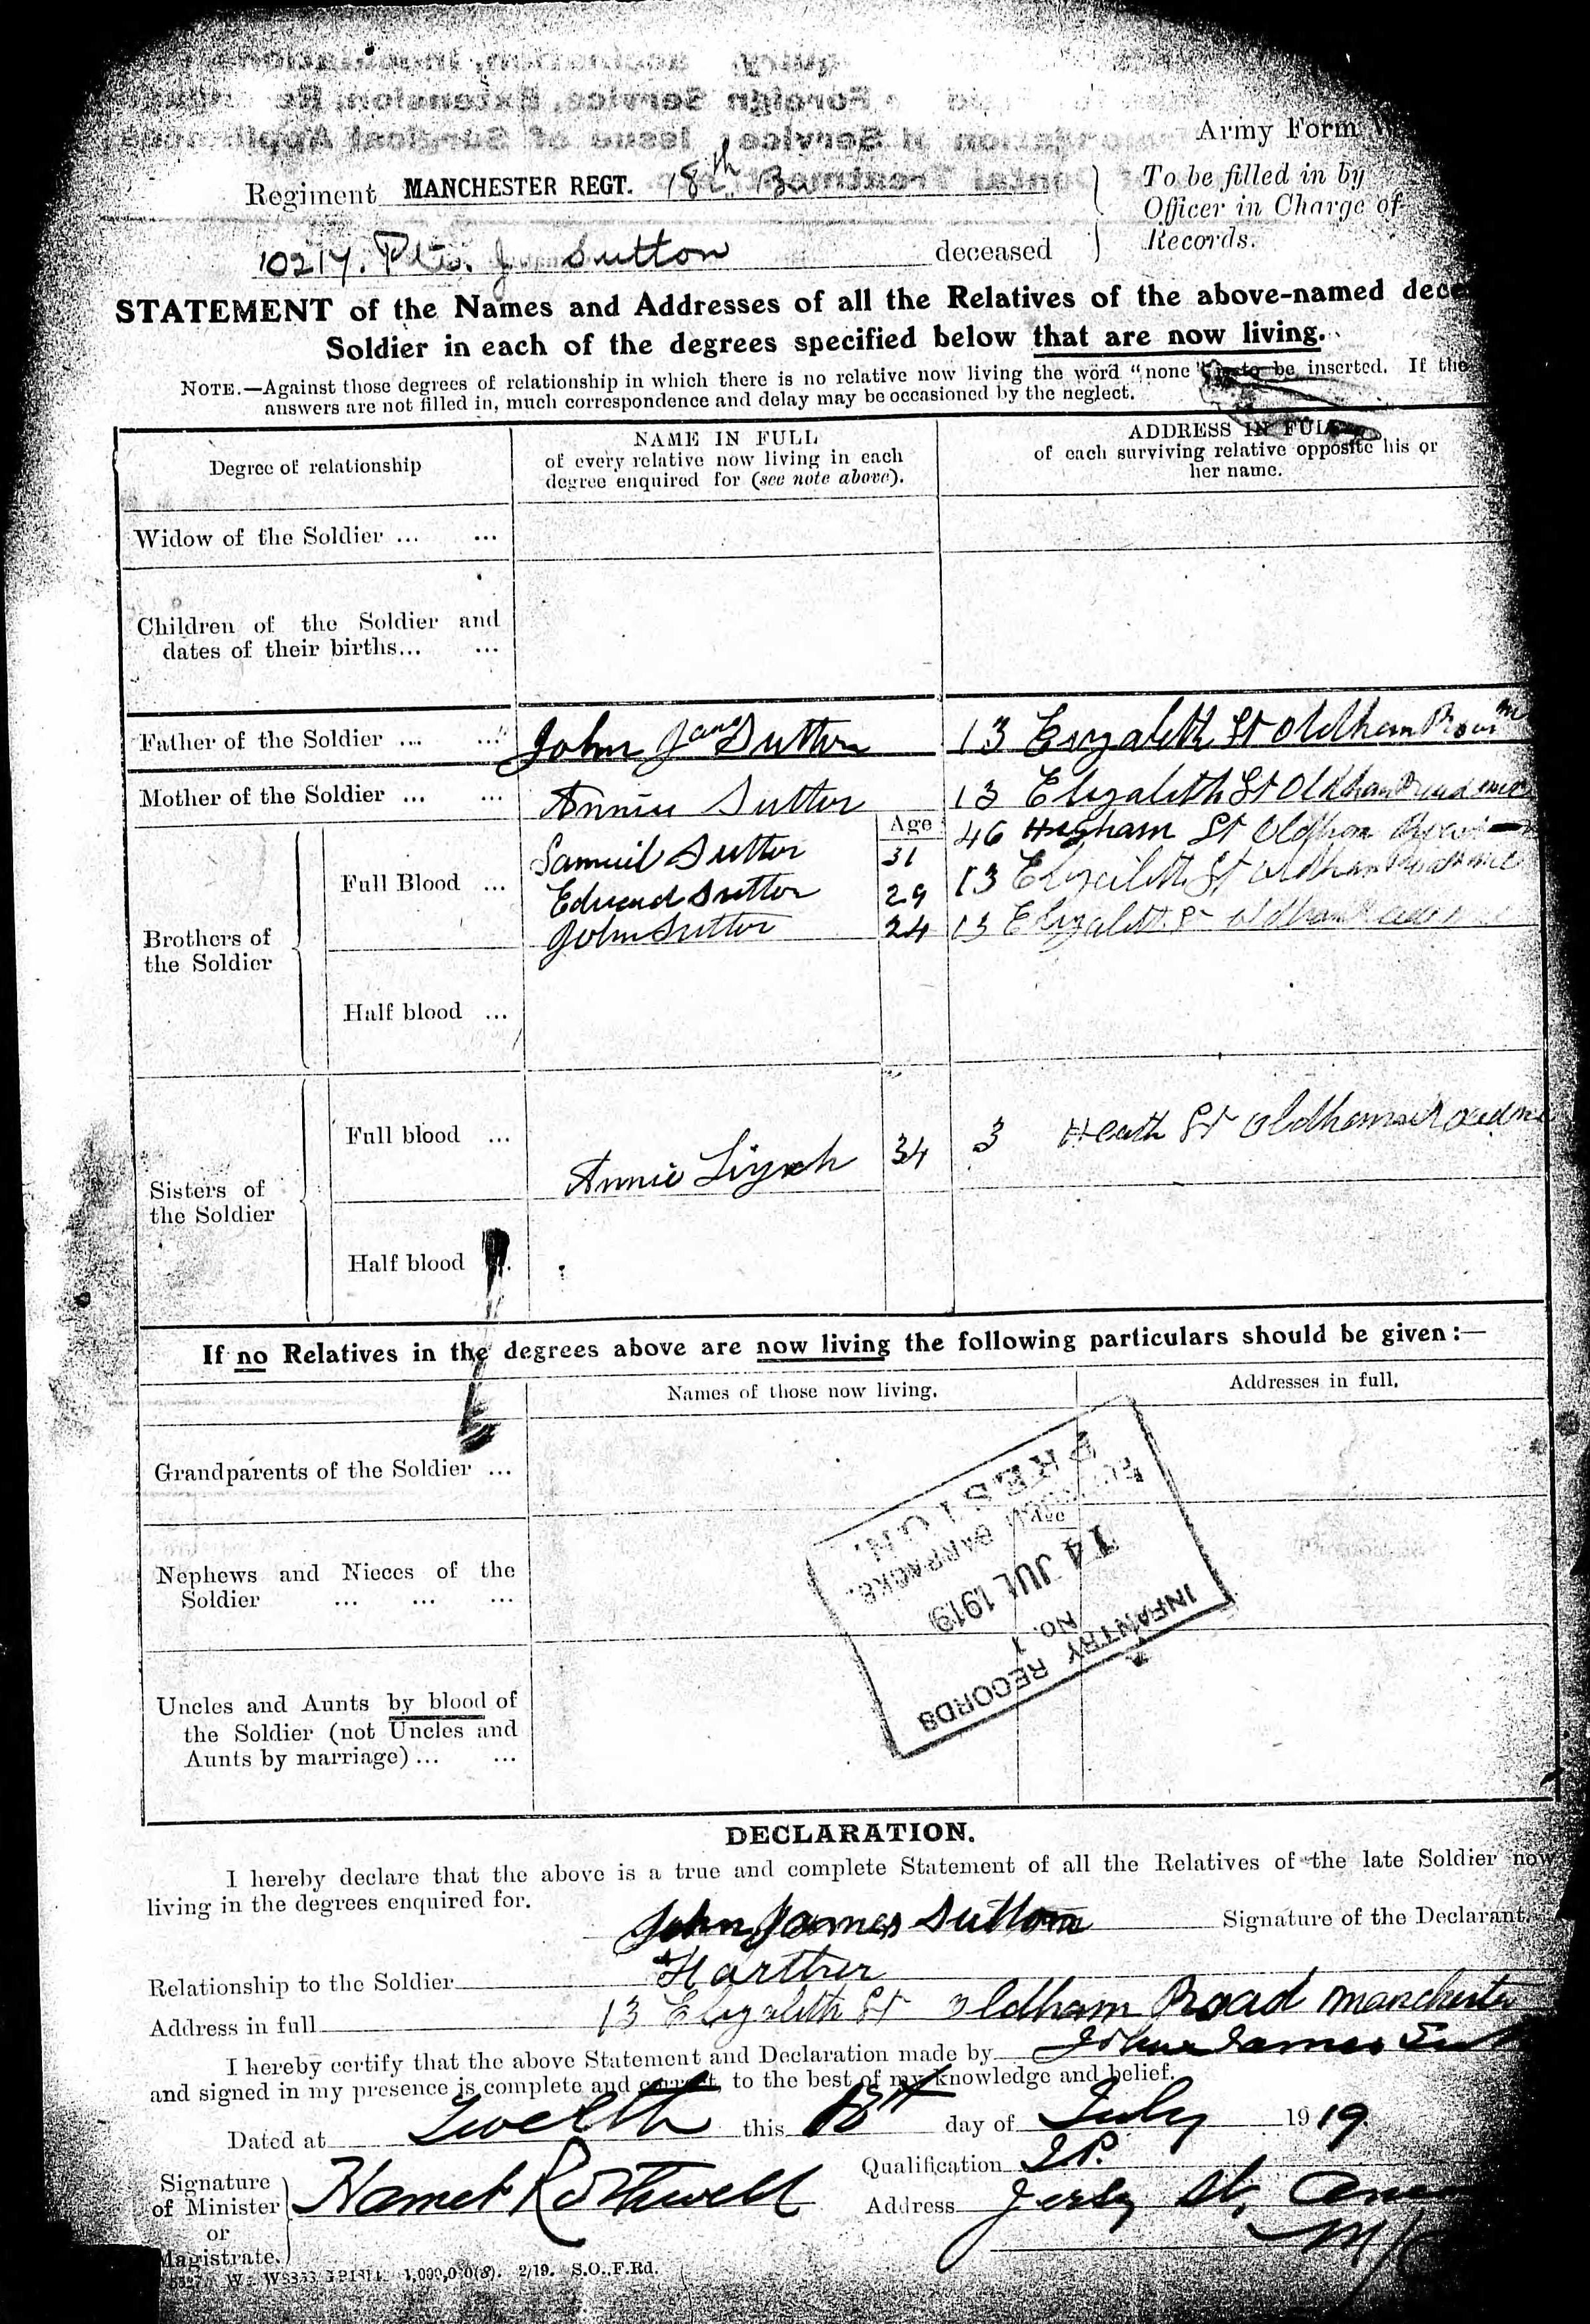 Army Form W
Regiment MANCHESTER REGT. 18th Bn
To be filled in by
Officer in Charge of
Records.
10214. Pte. J. Sutton deceased
STATEMENT of the Names and Addresses of all the Relatives of the above-named dece
Soldier in each of the degrees specified below that are now living.
NOTE.—Against those degrees of relationship in which there is no relative now living the word "none" is to be inserted. If the
answers are not filled in, much correspondence and delay may be occasioned by the neglect.
Degree of relationship
NAME IN FULL
of every relative now living in each
degree enquired for (see note above).
ADDRESS IN FULL
of each surviving relative opposite his or
her name.
Widow of the Soldier ... ...
Children of the Soldier and
dates of their births... ...
Father of the Soldier ... ... John James Sutton 13 Elizabeth St Oldham Road
Mother of the Soldier ... ... Annie Sutton 13 Elizabeth St Oldham Road
Age
Brothers of
the Soldier
Full Blood ...
Samuil Sutton 31 46 Higham St Oldham Road
Edward Sutton 29 13 Elizabeth St Oldham Road
John Sutton 24 13 Elizabeth St Oldham Road
Half blood ...
Sisters of
the Soldier
Full blood ...
Annie Liynch 34 3 Heath St Oldham Road
Half blood
If no Relatives in the degrees above are now living the following particulars should be given:—
Names of those now living.
Addresses in full.
Grandparents of the Soldier ...
Age
Nephews and Nieces of the
Soldier ... ... ...
Uncles and Aunts by blood of
the Soldier (not Uncles and
Aunts by marriage) ... ...
INFANTRY RECORDS
No. 1
14 JUL 1919
BARRACKS.
PRESTON.
DECLARATION.
I hereby declare that the above is a true and complete Statement of all the Relatives of the late Soldier now
living in the degrees enquired for.
John James Sutton Signature of the Declarant.
Relationship to the Soldier Farther
Address in full 13 Elizabeth St Oldham Road Manchester
I hereby certify that the above Statement and Declaration made by John James
and signed in my presence is complete and correct, to the best of my knowledge and belief.
Dated at this day of July 1919
Signature
of Minister
or
Magistrate.
Hamet Rothwell
Qualification J.P.
Address Jersey St,
1,000,000(8). 2/19. S.O., F.Rd.